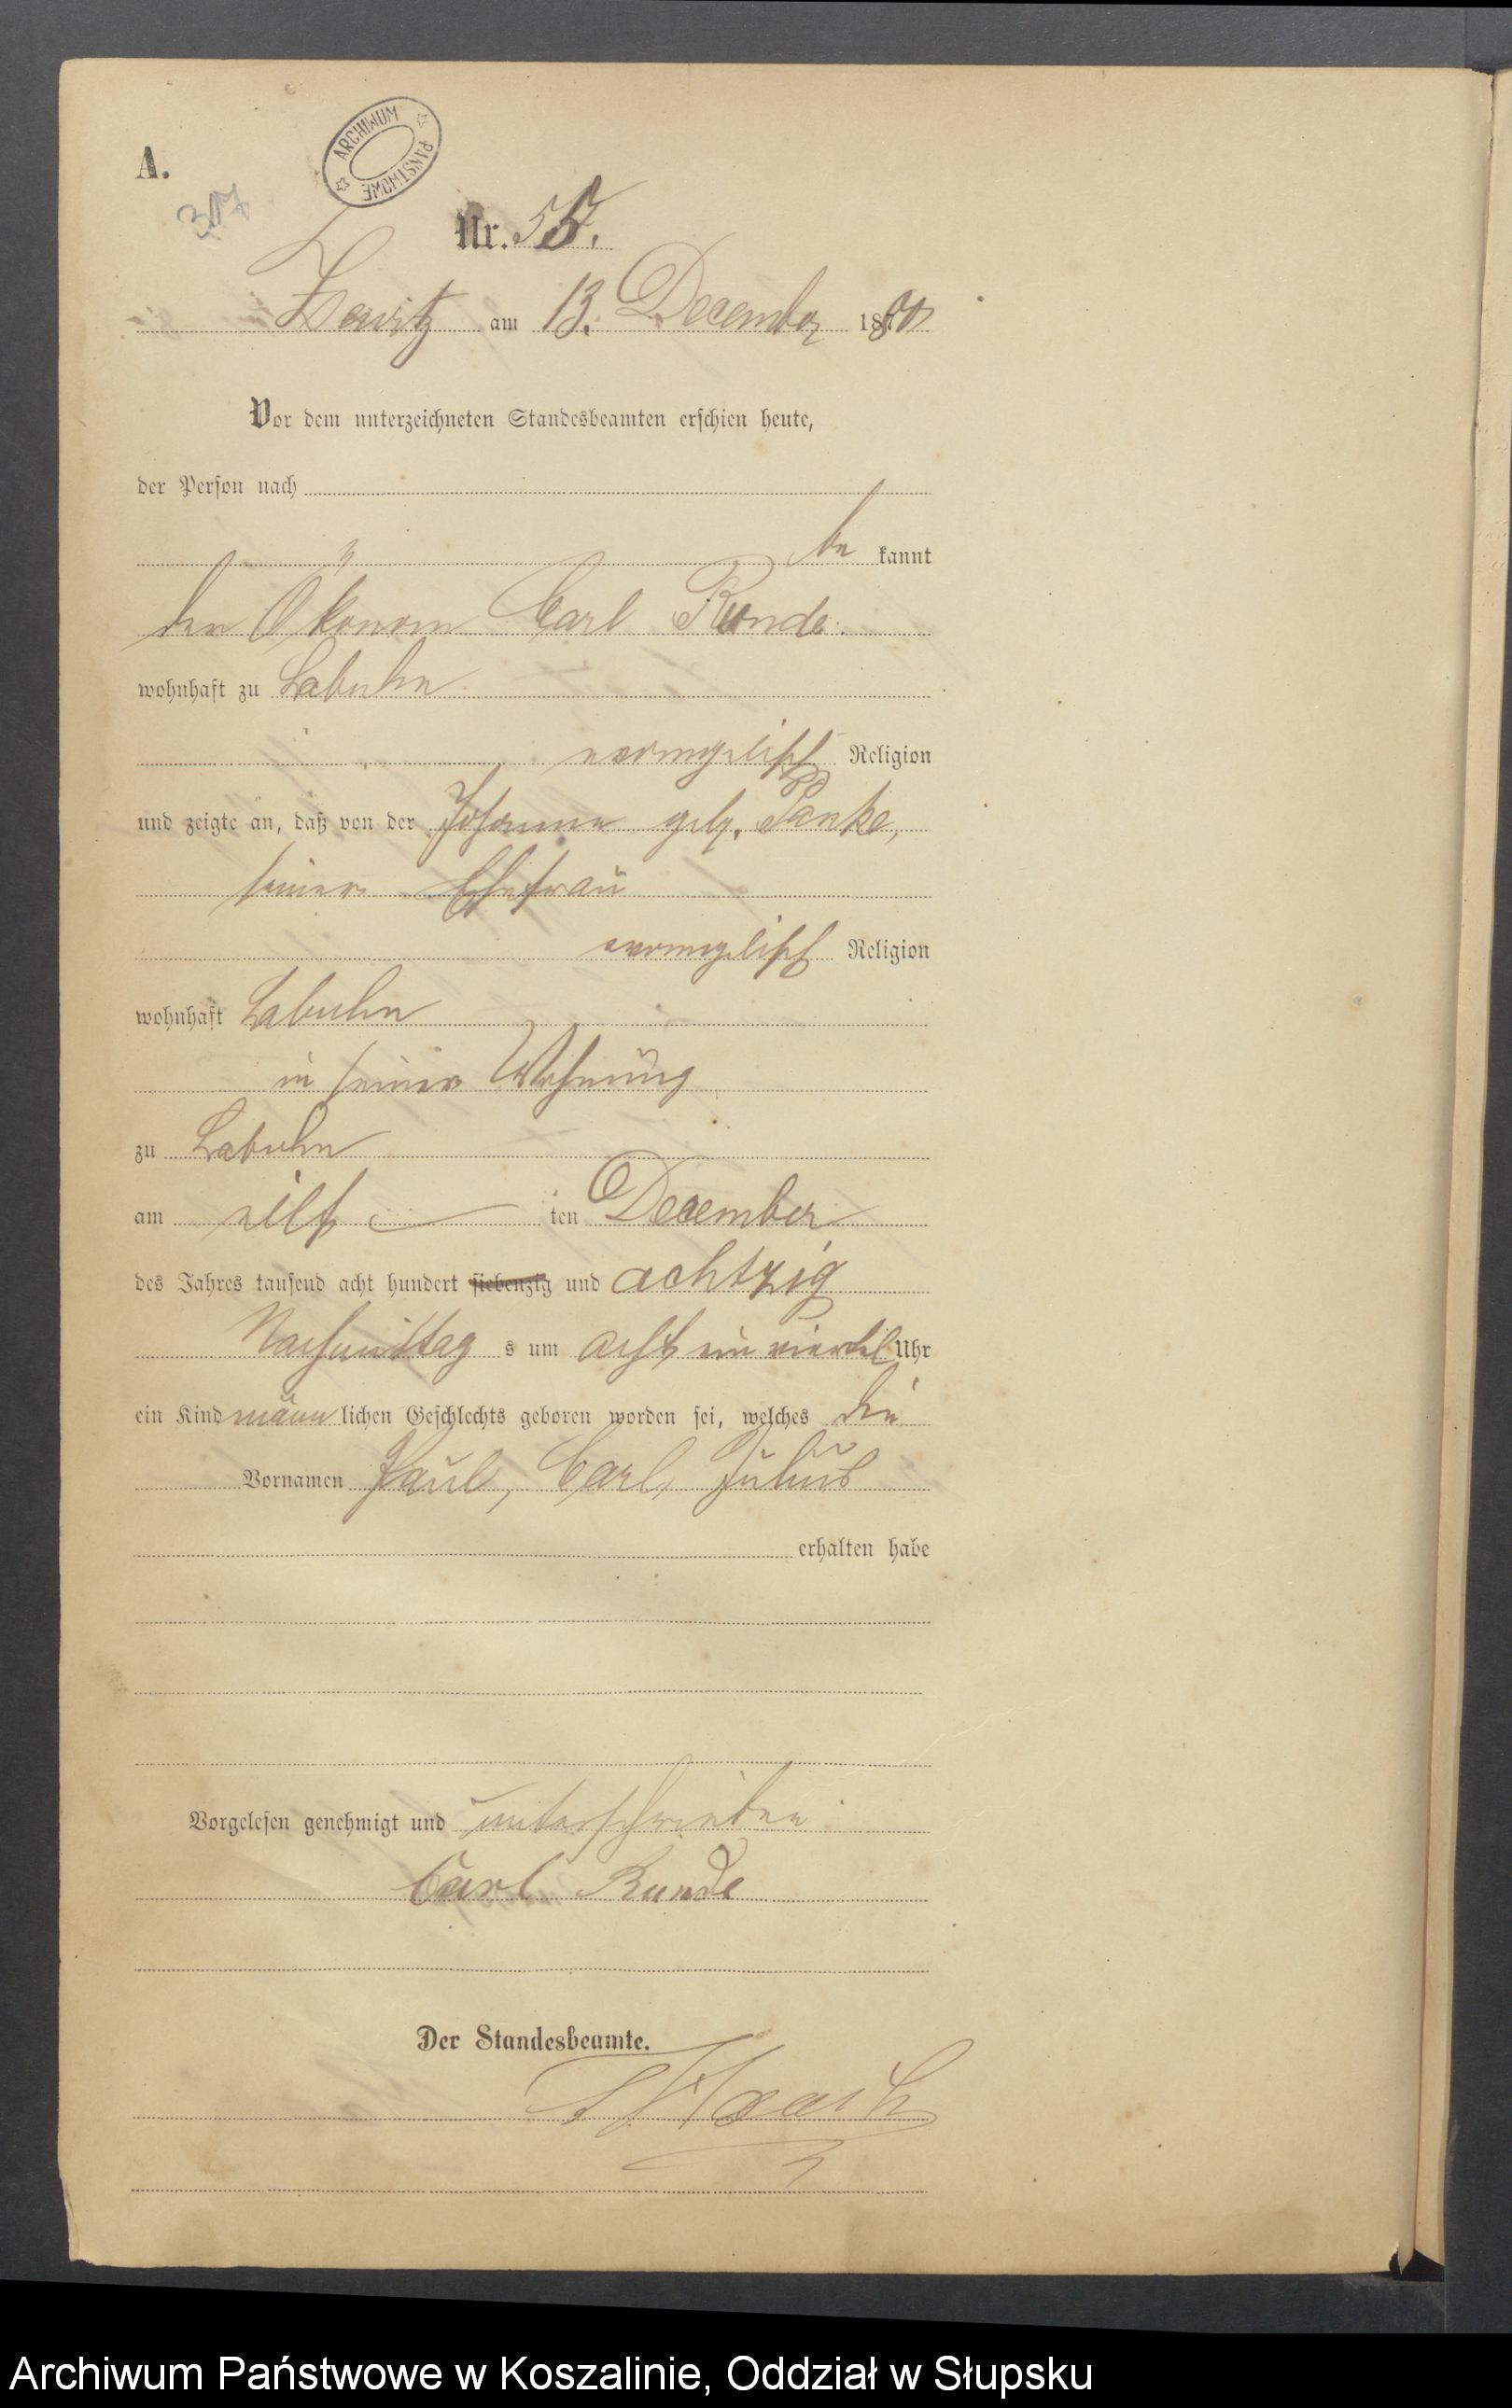 A.
ARCHIWUM PAŃSTWOWE
317
Nr. 55.
Zewitz am 13. December 1880
Vor dem unterzeichneten Standesbeamten erschien heute,
der Person nach
be kannt
der Ökonom Carl Runde
wohnhaft zu Labuhn
evangelisch Religion
und zeigte an, daß von der Johanna geb. Panke,
seiner Ehefrau
evangelisch Religion
wohnhaft Labuhn
in seiner Wohnung
zu Labuhn
am eilf ten December
des Jahres tausend acht hundert siebenzig und achtzig
Nachmittag s um acht ein viertel Uhr
ein Kind männ lichen Geschlechts geboren worden sei, welches die
Vornamen Paul, Carl, Julius
erhalten habe
Vorgelesen genehmigt und unterschrieben
Carl Runde
Der Standesbeamte.
Archiwum Państwowe w Koszalinie, Oddział w Słupsku